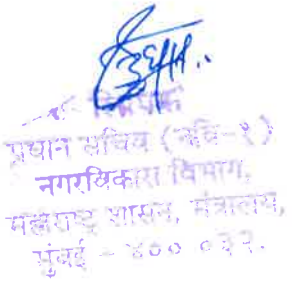 प्रधान सचिव (नवि-१)
नगरविकास विभाग,
महाराष्ट्र शासन, मंत्रालय,
मुंबई - ४०० ०३२.